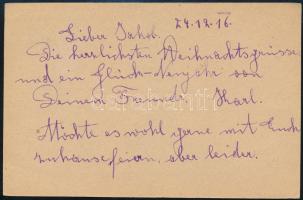 Lieber Jakob. 24.12.16.
Die herzlichsten Weihnachtsgrüsse
und ein Glück-Neujahr von
Deinem Freunde Karl.
Möchte es wohl gerne mit Euch
zuhause feiern, aber leider.